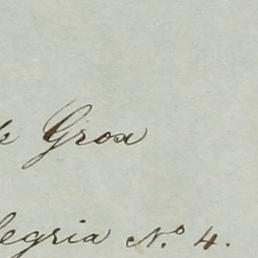 Grox
legria N.º 4.